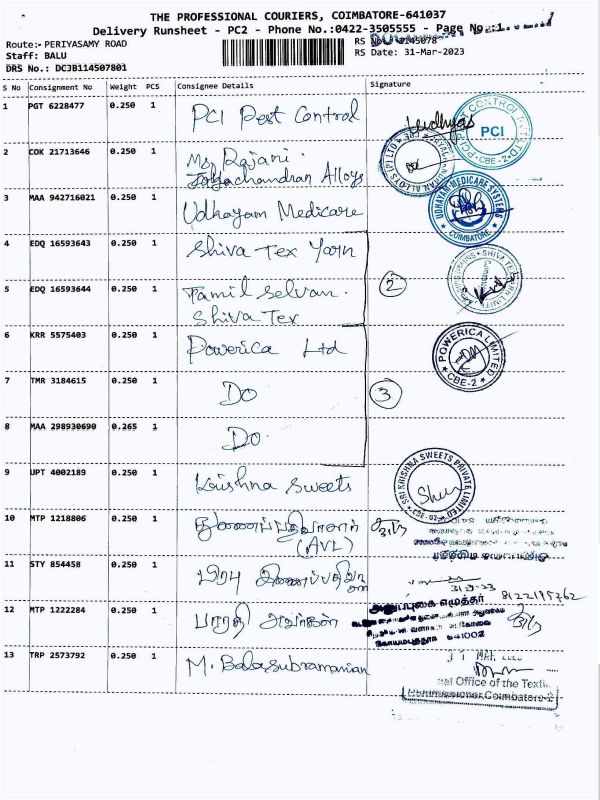 THE PROFESSIONAL COURIERS, COIMBATORE-641037
Delivery Runsheet - PC2 - Phone No.:0422-3505555 - Page No.:1
Route:- PERIYASAMY ROAD
RS No
1145078
Staff: BALU
RS Date: 31-Mar-2023
DRS No.: DCJB114507801
S No Consignment No Weight PCS Consignee Details Signature
1 PGT 6228477 0.250 1 PCI Pest Control
PCI
CBE-2
2 COK 21713646 0.250 1 Ms Rajani
Jayachandran Alloys
3 MAA 942716021 0.250 1 Udhayam Medicare
UDHAYAM MEDICARE SYSTEMS
COIMBATORE
4 EDQ 16593643 0.250 1 Shiva Tex Yarn
5 EDQ 16593644 0.250 1 Tamil Selvan.
Shiva Tex
2
6 KRR 5575403 0.250 1 Powerica Ltd
POWERICA LIMITED
CBE-2
7 TMR 3184615 0.250 1 Do
3
8 MAA 298930690 0.265 1 Do
9 UPT 4002189 0.250 1 Krishna Sweets
SRI KRISHNA SWEETS PRIVATE LIMITED
10 MTP 1218806 0.250 1
(AVL)
11 STY 854458 0.250 1
12 MTP 1222284 0.250 1
13 TRP 2573792 0.250 1 M. Balasubramanian
Office of the Texti
Commissioner, Coimbatore-2